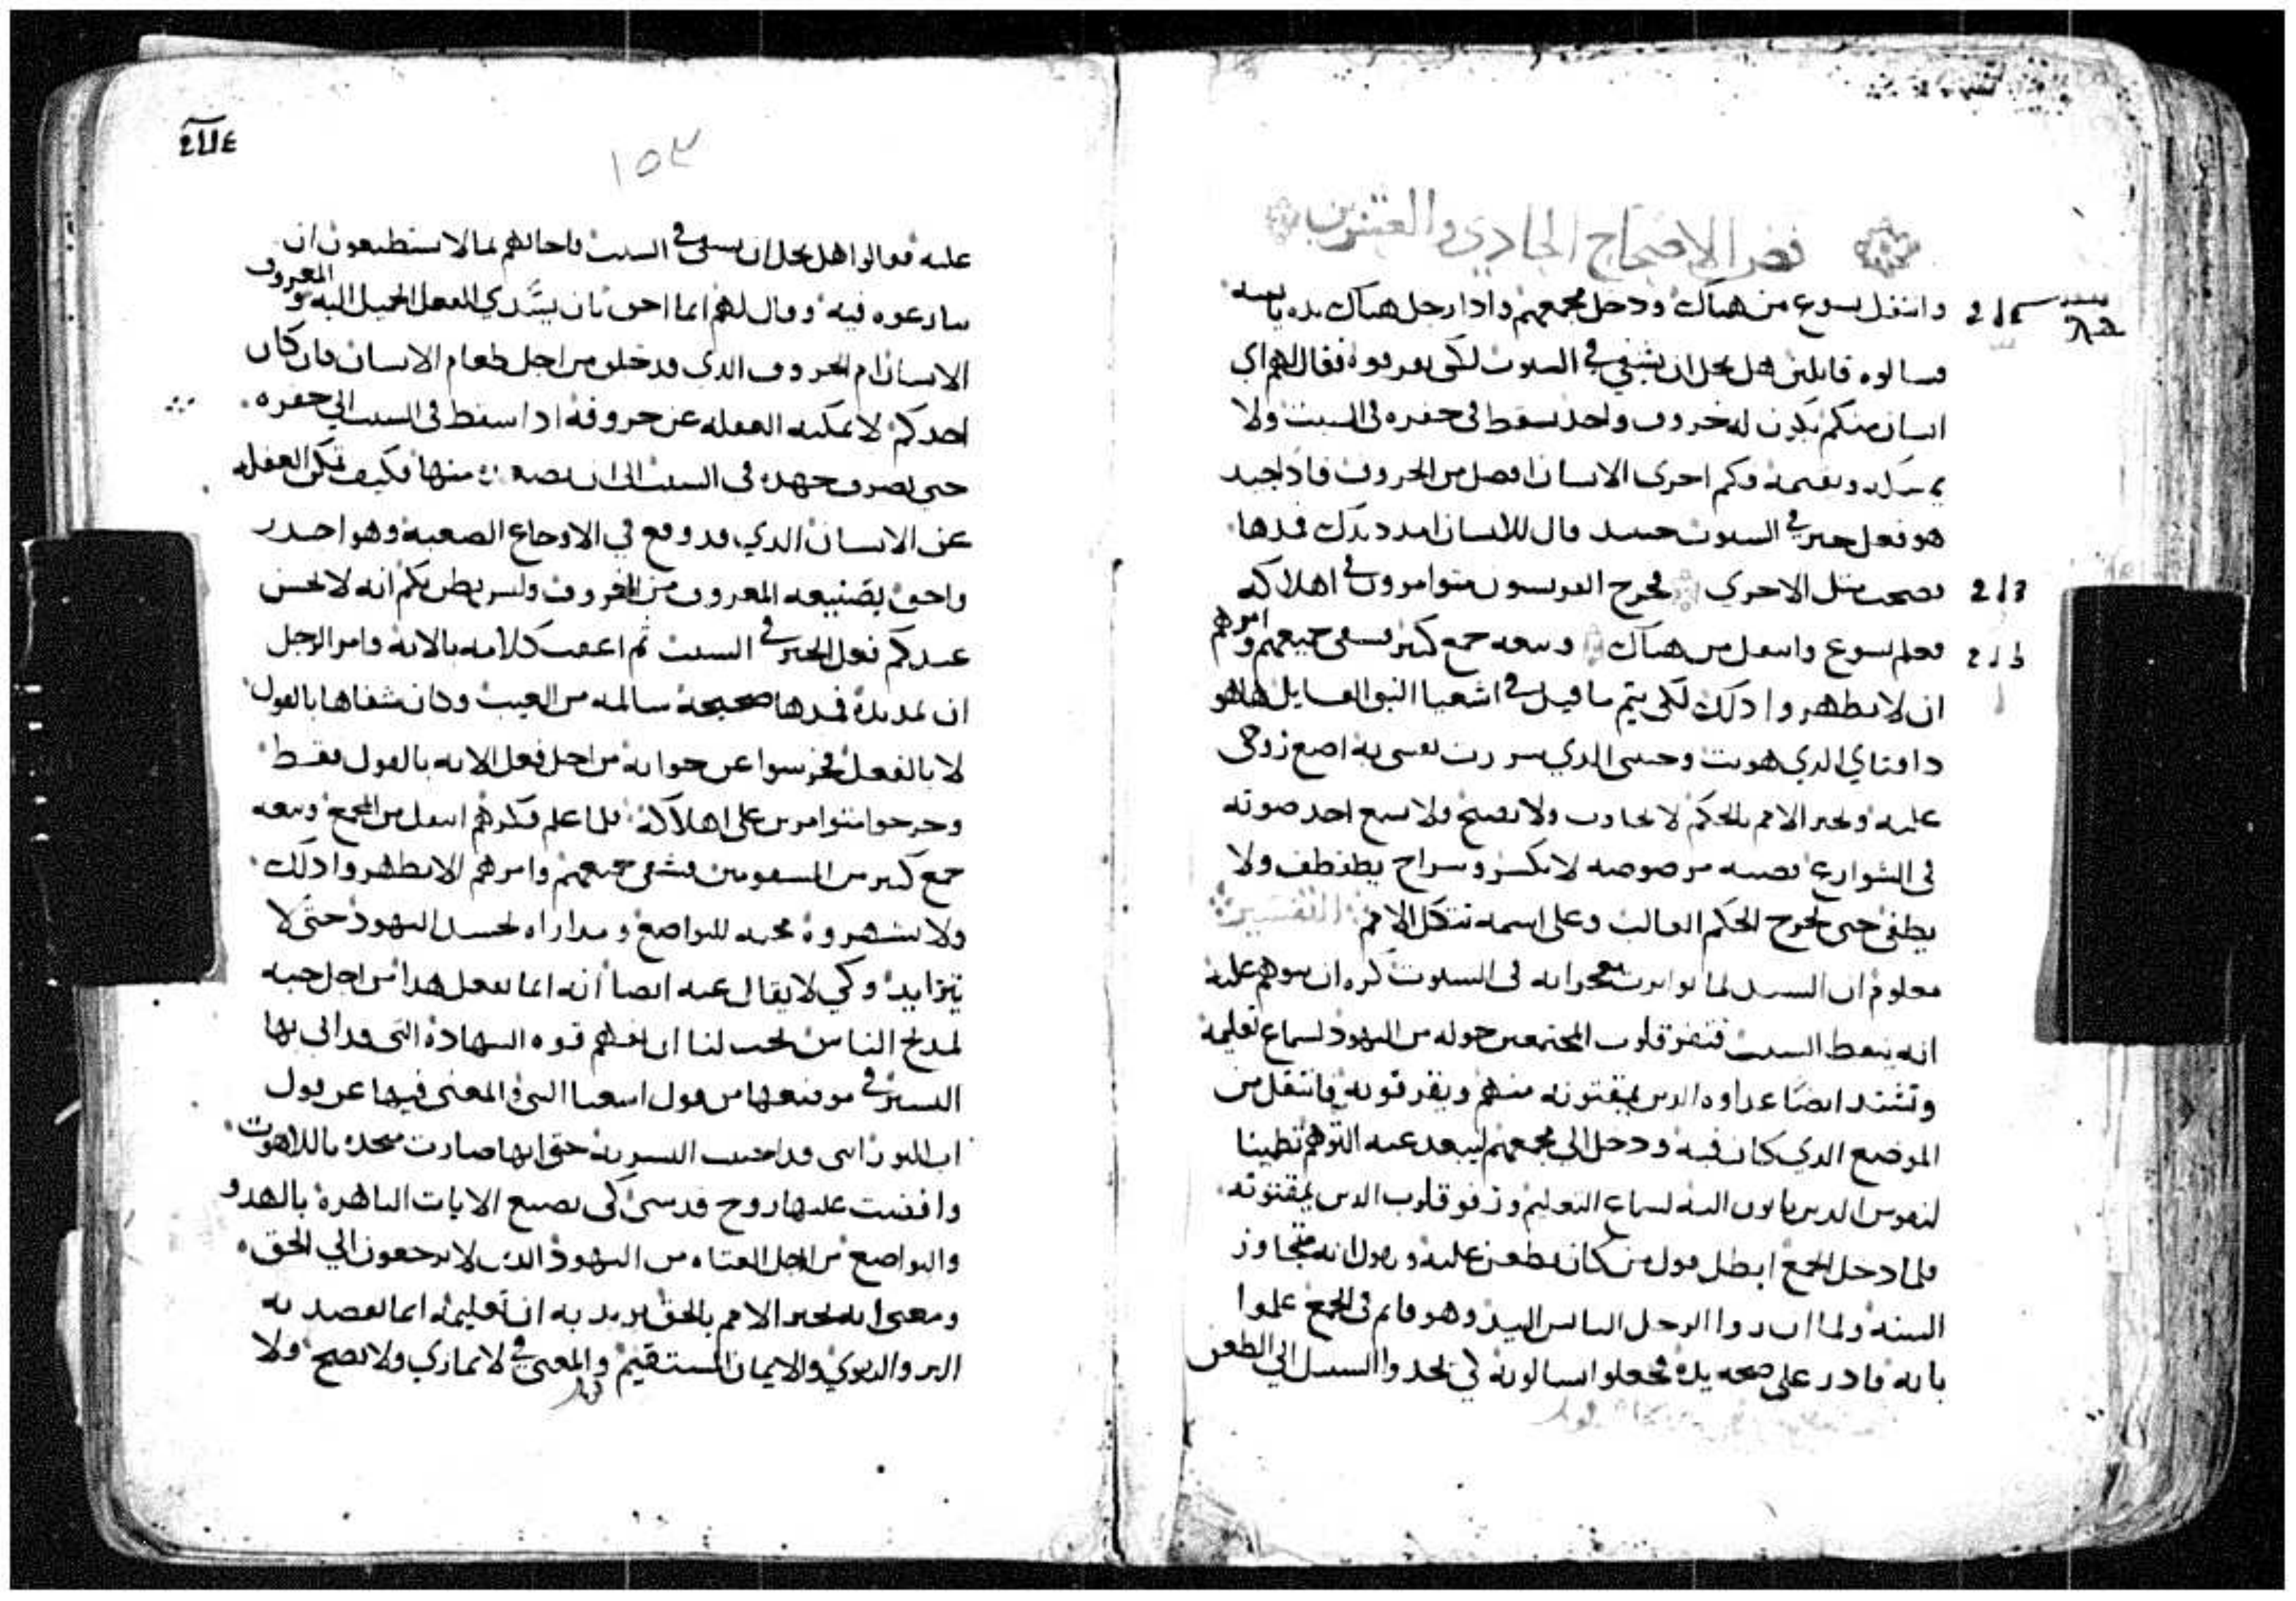 نص الاصحاح الحادي والعشرون
وانتقل يسوع من هناك ودخل مجمعهم واذا رجل هناك يده يابسه
فسالوه قايلين هل يحل ان يشفي في السبوت لكي يقرفوه فقال لهم اي
انسان منكم يكون له خروف واحد يسقط في حفره في السبت ولا
يمسكه ويقيمه وكم احرى الانسان افضل من الخروف فاذا جيد
هو فعل خير في السبوت حينيد قال للانسان امدد يدك فمدها
فصحت مثل الاخري فخرج الفريسيون متوامرون في اهلاكه
فعلم يسوع وانتقل من هناك وتبعه جمع كثير فشفى جميعهم وامرهم
ان لا يظهروا ذلك لكي يتم ما قيل في اشعيا النبي القايل هاهو
ذا فتاي الذي هويت وحبيبي الذي سررت نفسي به اضع روحي
عليه ويخبر الامم بالحكم لا يحارب ولا يصيح ولا يسمع احد صوته
في الشوارع قصبه مرضوضه لا يكسر وسراج يطفطف ولا
يطفي حتى يخرج الحكم الغالب وعلى اسمه تتكل الامم التفسير
معلوم ان السيد لما تواترت معجزاته في السبوت كره ان يتوهم عليه
انه ينقض السبت فتنفر قلوب المجتمعين حوله من اليهود لسماع تعليمه
وتشتد ايضا عداوه الذين يمقتونه منهم ويقرفونه فانتقل من
الموضع الذي كان فيه ودخل الى مجمعهم ليبعد عنه التوهم تطيبا
لنفوس الذين ياتون اليه لسماع التعليم وترفو قلوب الذين يمقتونه
فلما دخل المجمع ابطل قول من كان يطعن عليه ويقول انه متجاوز
السنه ولما ان راوا الرجل اليابس اليد وهو قايم في المجمع علموا
بانه قادر على صحه يده فجعلوا يسالونه كي يجدوا السبيل الى الطعن
١٥٣
عليه فقالوا هل يحل ان يشفى في السبت فاجابهم بما لا يستطيعون ان
ينازعوه فيه وقال لهم ايما احق بان يسدي الفعل الجميل اليه والمعروف
الانسان ام الخروف الذي قد خلق من اجل طعام الانسان فان كان
احدكم لا يمكنه الغفله عن خروفه اذا سقط في السبت الى حفره
حتى يصرف جهده في السبت الى ان يصعده منها فكيف تمكن الغفله
عن الانسان الذي قد وقع في الاوجاع الصعبه وهو اجدر
واحق بصنيعه المعروف من الخروف وليس يظن بكم انه لا يحسن
عندكم فعل الخير في السبت ثم اعقب كلامه بالايه وامر الرجل
ان يمد يده فمدها صحيحه سالمه من العيب وكان شفاها بالقول
لا بالفعل فخرسوا عن جوابه من اجل فعل الايه بالقول فقط
وخرجوا متوامرين على اهلاكه فلما علم فكرهم انتقل من المجمع وتبعه
جمع كثير من المسقومين فشفى جميعهم وامرهم الا يظهروا ذلك
ولا يشهروه محبه للتواضع ومداراه لحسد اليهود حتى لا
يتزايد وكي لا يقال عنه ايضا انه انما يفعل هذا من اجل حبه
لمديح الناس يجب لنا ان نفهم قوه الشهاده التي قد اتى بها
البشير في موضعها من قول اشعيا النبي والمعنى فيها عن قول
اب النور انني قد احببت البشريه حتى انها صارت متحده باللاهوت
وافضت عليها روح قدسي كي يصنع الايات الباهره بالهدو
والتواضع من اجل العتاه من اليهود الذين لا يرجعون الي الحق
ومعنى انه يخبر الامم بالحق يريد به ان تعليمه انما يقصد به
البر والتقوي والايمان المستقيم والمعنى في لا يماري ولا يصيح ولا